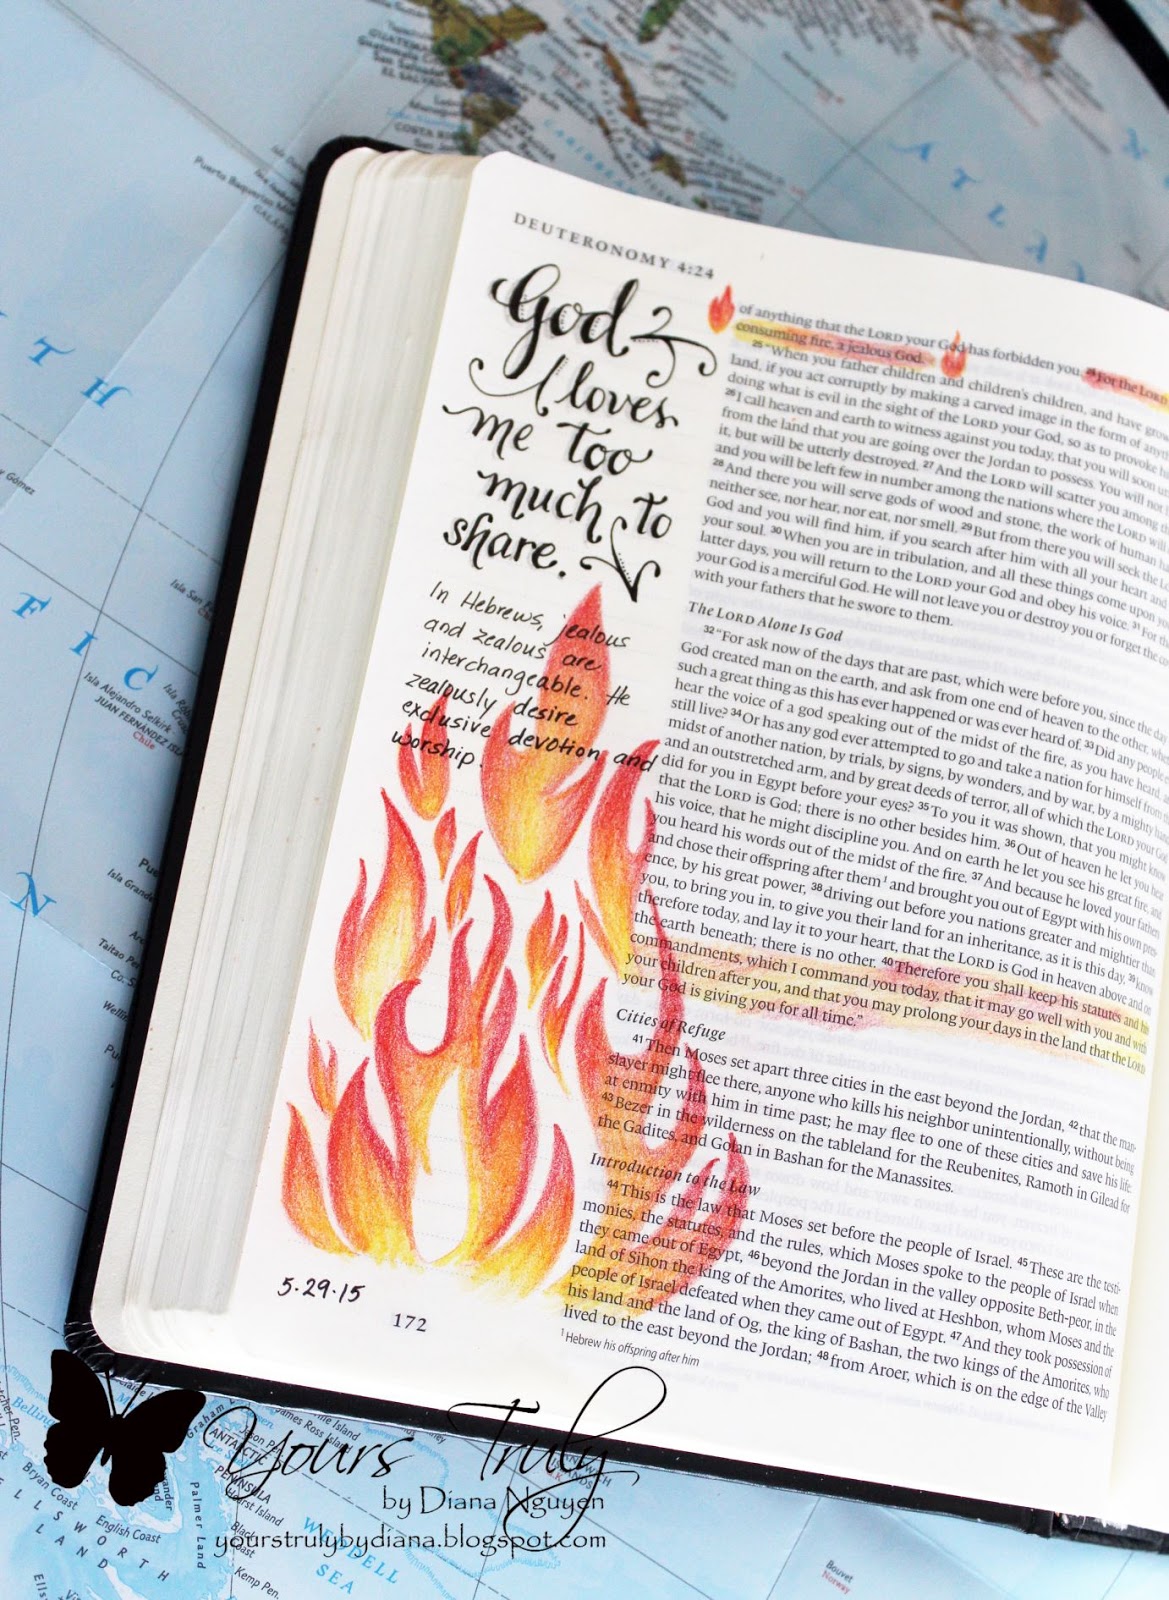 DEUTERONOMY 4:24
God
loves
me too
much to
share.
In Hebrews, jealous
and zealous are
interchangeable. He
zealously desire
exclusive devotion and
worship.
5.29.15
172
of anything that the LORD your God has forbidden you. 24 For the LORD
consuming fire, a jealous God.
25 "When you father children and children's children, and have grow
land, if you act corruptly by making a carved image in the form of anyth
doing what is evil in the sight of the LORD your God, so as to provoke h
26 I call heaven and earth to witness against you today, that you will soon
from the land that you are going over the Jordan to possess. You will not
it, but will be utterly destroyed. 27 And the LORD will scatter you among
and you will be left few in number among the nations where the LORD will
28 And there you will serve gods of wood and stone, the work of human
neither see, nor hear, nor eat, nor smell. 29 But from there you will seek the
God and you will find him, if you search after him with all your heart and
your soul. 30 When you are in tribulation, and all these things come upon you
latter days, you will return to the LORD your God and obey his voice. 31 For the
your God is a merciful God. He will not leave you or destroy you or forget the co
with your fathers that he swore to them.
The LORD Alone Is God
32 "For ask now of the days that are past, which were before you, since the day
God created man on the earth, and ask from one end of heaven to the other, whe
such a great thing as this has ever happened or was ever heard of. 33 Did any people
hear the voice of a god speaking out of the midst of the fire, as you have heard,
still live? 34 Or has any god ever attempted to go and take a nation for himself from
midst of another nation, by trials, by signs, by wonders, and by war, by a mighty
and an outstretched arm, and by great deeds of terror, all of which the LORD your God
did for you in Egypt before your eyes? 35 To you it was shown, that you might know
that the LORD is God; there is no other besides him. 36 Out of heaven he let you hear
his voice, that he might discipline you. And on earth he let you see his great fire, and
you heard his words out of the midst of the fire. 37 And because he loved your fathers
and chose their offspring after them1 and brought you out of Egypt with his own pres-
ence, by his great power, 38 driving out before you nations greater and mightier than
you, to bring you in, to give you their land for an inheritance, as it is this day, 39 know
therefore today, and lay it to your heart, that the LORD is God in heaven above and on
the earth beneath; there is no other. 40 Therefore you shall keep his statutes and his
commandments, which I command you today, that it may go well with you and with
your children after you, and that you may prolong your days in the land that the LORD
your God is giving you for all time."
Cities of Refuge
41 Then Moses set apart three cities in the east beyond the Jordan, 42 that the man-
slayer might flee there, anyone who kills his neighbor unintentionally, without being
at enmity with him in time past; he may flee to one of these cities and save his life:
43 Bezer in the wilderness on the tableland for the Reubenites, Ramoth in Gilead for
the Gadites, and Golan in Bashan for the Manassites.
Introduction to the Law
44 This is the law that Moses set before the people of Israel. 45 These are the testi-
monies, the statutes, and the rules, which Moses spoke to the people of Israel when
they came out of Egypt, 46 beyond the Jordan in the valley opposite Beth-peor, in the
land of Sihon the king of the Amorites, who lived at Heshbon, whom Moses and the
people of Israel defeated when they came out of Egypt. 47 And they took possession of
his land and the land of Og, the king of Bashan, the two kings of the Amorites, who
lived to the east beyond the Jordan; 48 from Aroer, which is on the edge of the Valley
1 Hebrew his offspring after him
GUATEMALA
EL SALVADOR
COSTA RICA
ATLA
TH
FIC
N
Isla Alejandro Selkirk
JUAN FERNANDEZ
Chile
ANTARCTIC
PENINSULA
James Ross Island
Bryan Coast
English Coast
ELLSWORTH
LAND
Palmer Land
Hearst Island
Kemp Pen.
WEDDELL
SEA
Bouvet
Norway
Yours Truly
by Diana Nguyen
yourstrulybydiana.blogspot.com